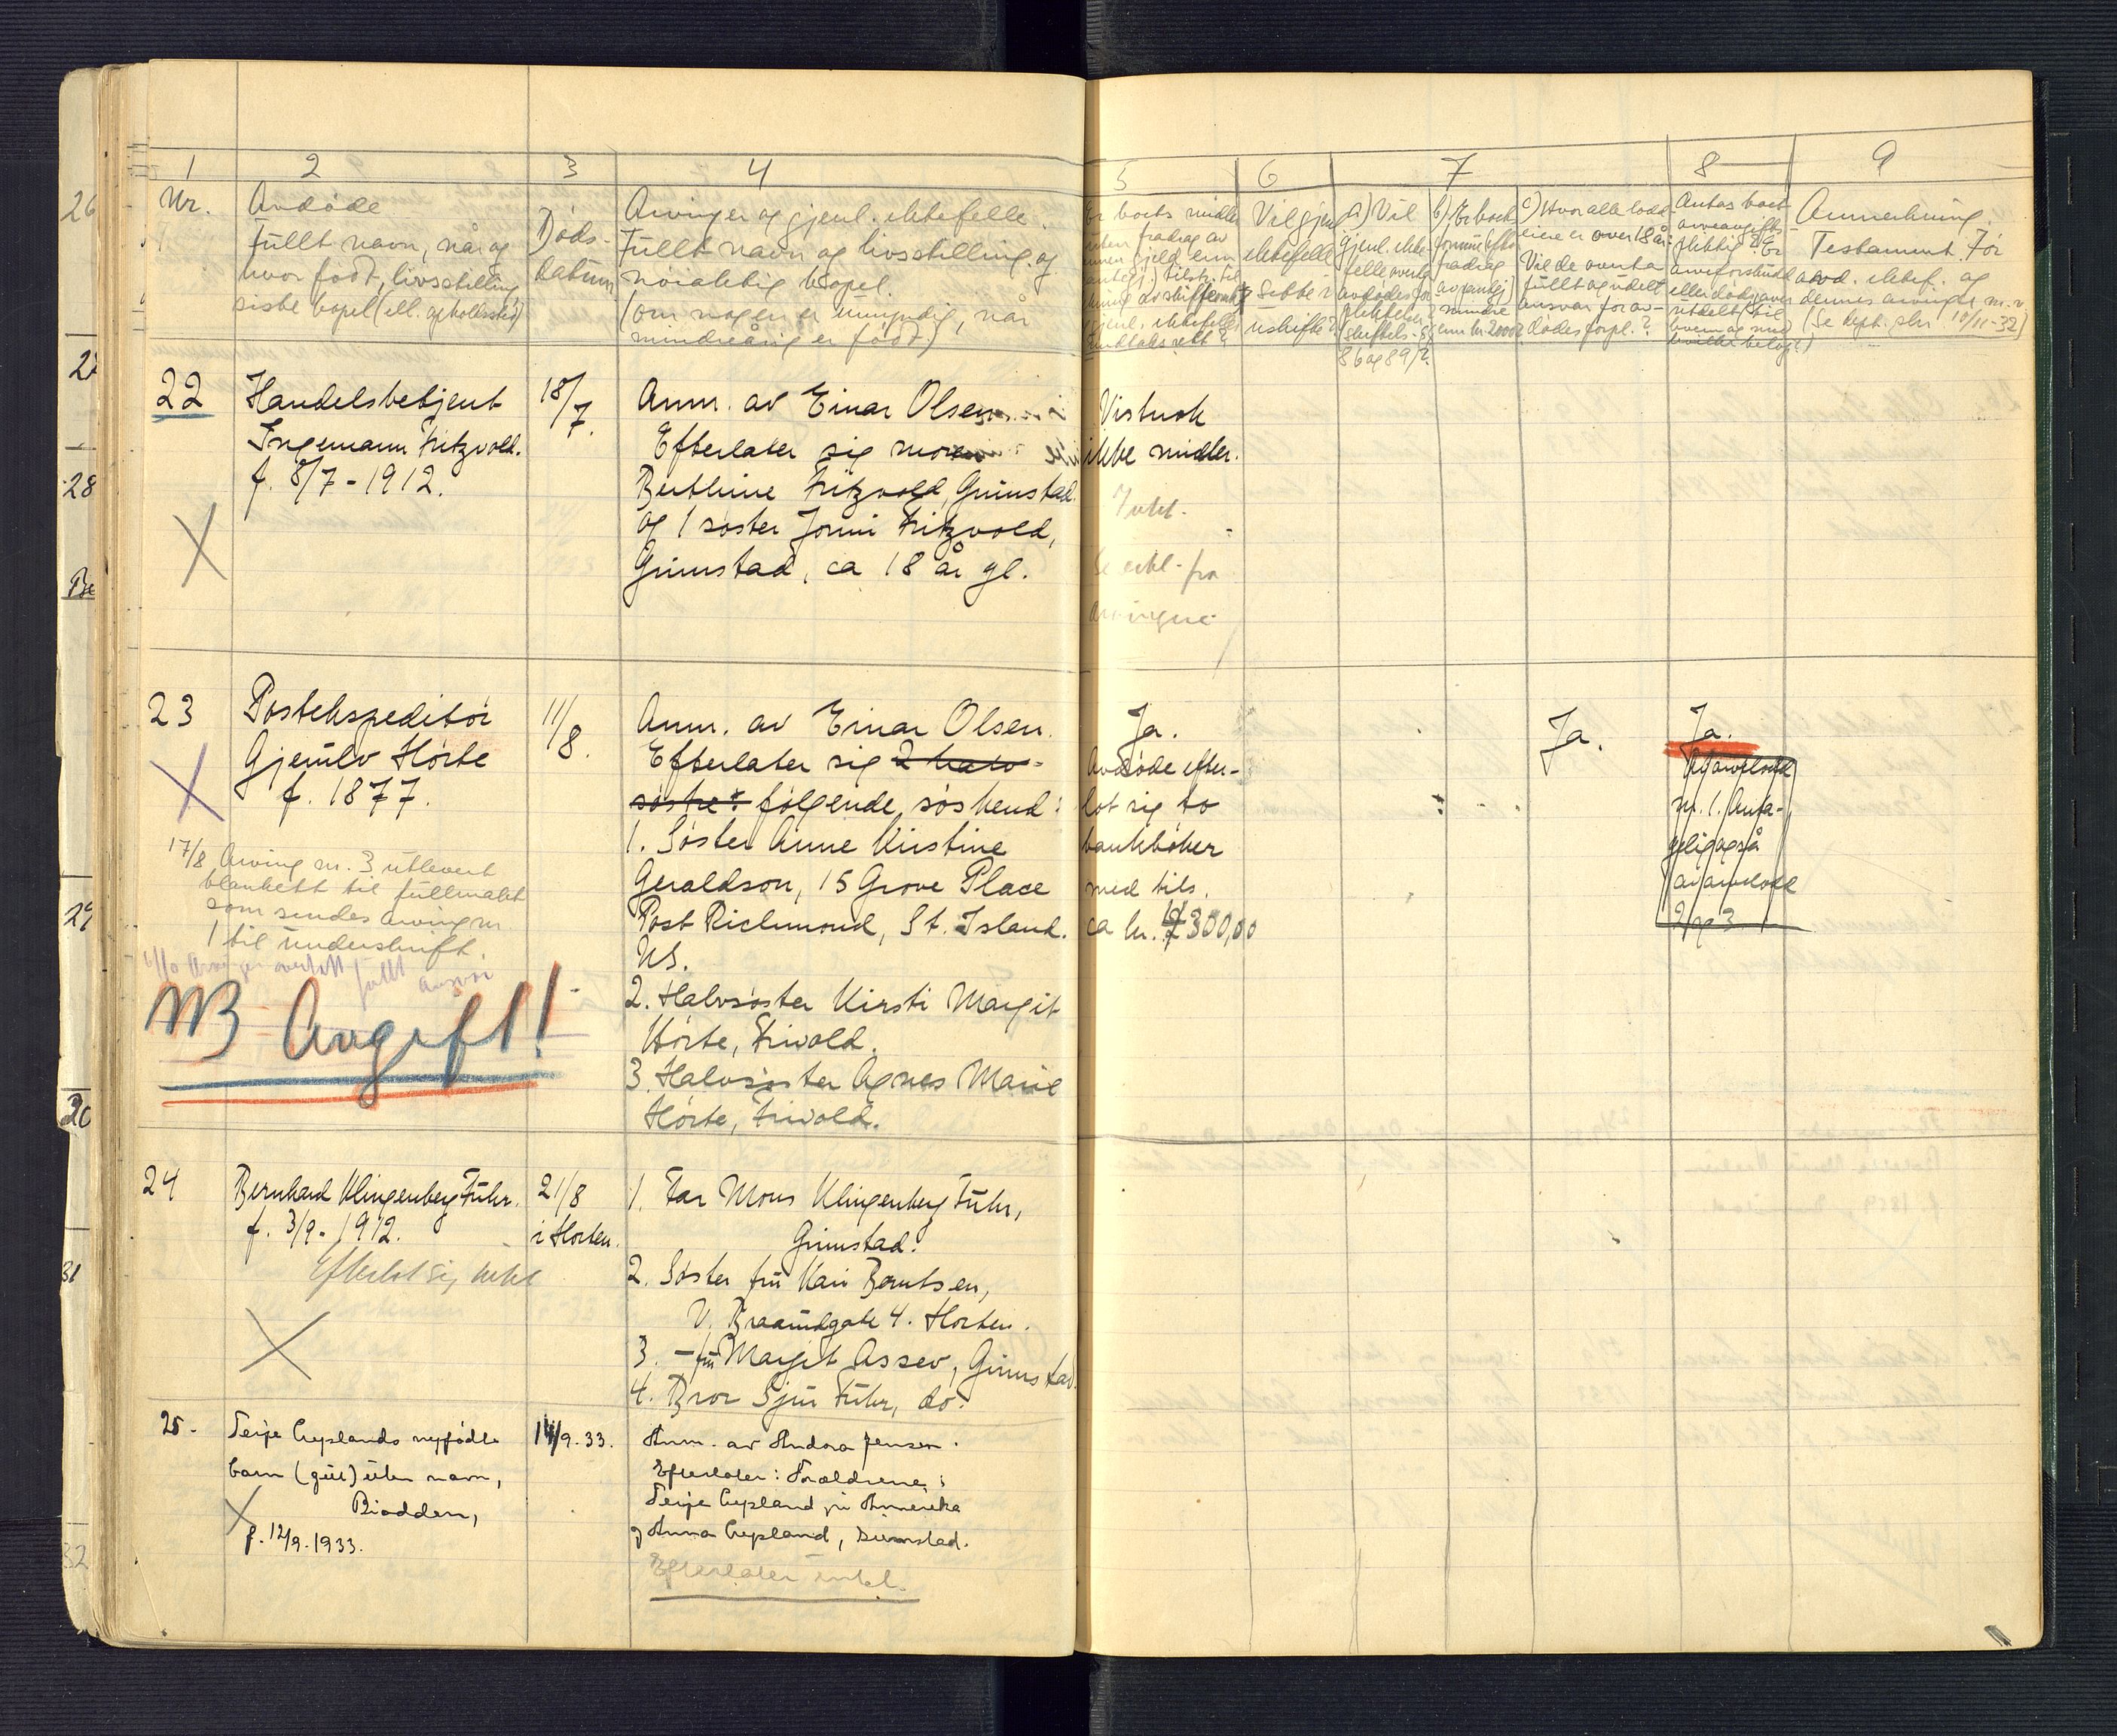 1 2 3 4 5 6 7 8 9
Nr.
Avdøde
Fullt navn, når og
hvor født, livsstilling
siste bopel (ell. opholdssted)
Døds-
datum
Arvinger og gjenl. ektefelle.
Fullt navn og livsstilling og
nøiaktig bopel.
(om nogen er umyndig, når
mindreårig er født.)
Er boets midler
uten fradrag av
Vil gjenl.
ektefelle
sitte i
uskifte?
a) Vil
gjenl. ekte-
felle overta
avdødes for-
pliktelser?
(skiftels. §§
86 og 89)?
b) Er boets
formue efter
fradrag
av
mindre
enn kr. 2000?
c) Hvor alle lodd-
eiere er over 18 år:
Vil de overta
fullt og udelt
ansvar for av-
dødes forpl.?
Antas boet
arveavgifts-
pliktig? Er
arveforskudd
eller dødsgaver
utdelt, til
hvem og med
hvilke beløp?
Anmerkning.
Testament. For
avd. ektef. og
dennes arvinger m.v.
(Se dept. skr. 10/11-32)
26
27
28
29
30
31
32
22
Handelsbetjent
Ingemann Fritzvold.
f. 8/7-1912.
18/7.
Anm. av Einar Olsen
Efterlater sig moren
Berthine Fritzvold, Grimstad
og 1 søster Jonni Fritzvold,
Grimstad, ca 18 år gl.
Visstnok
ikke midler.
Intet.
Se erkl. fra
arvingene
23
Postekspeditør
Gjerulv Hørte
f. 1877.
11/8.
17/8 Arving nr. 3 utlevert
blankett til fullmakt
som sendes arving nr.
1 til underskrift.
Arvinger overtatt fullt ansvar
NB Avgift!
Anm. av Einar Olsen.
Efterlater sig 2 halv-
søstre: følgende søskend:
1. Søster Anne Kirstine
Geraldson, 15 Grove Place
Post Richmond, St. Island.
US.
2. Halvsøster Kirsti Margit
Hørte, Frivold.
3. Halvsøster Agnes Marie
Hørte, Frivold.
Ja.
Avdøde efter-
lot sig to
bankbøker
med tils.
ca kr. 300,00
Ja.
Ja.
Av arvelodd
nr. 1. Anta-
gelig også
av arvelodd
2 og 3
24
Bernhard Klingenberg Fuhr.
f. 3/9-1912.
Efterlot sig intet
21/8
i Horten.
1. Far Mons Klingenberg Fuhr,
Grimstad.
2. Søster fru Kari Berntsen,
V. Braarudgate 4. Horten.
3. - fru Margit Assev, Grimstad.
4. Bror Sjur Fuhr, do.
25.
Terje Gryslands nyfødte
barn (gutt) uten navn,
Biodden,
f. 12/9.1933.
14/9-33.
Anm. av Andora Jensen.
Efterlater: Forældrene:
Terje Grysland in Amerika
og Anna Grysland, Grimstad.
Efterlater intet.